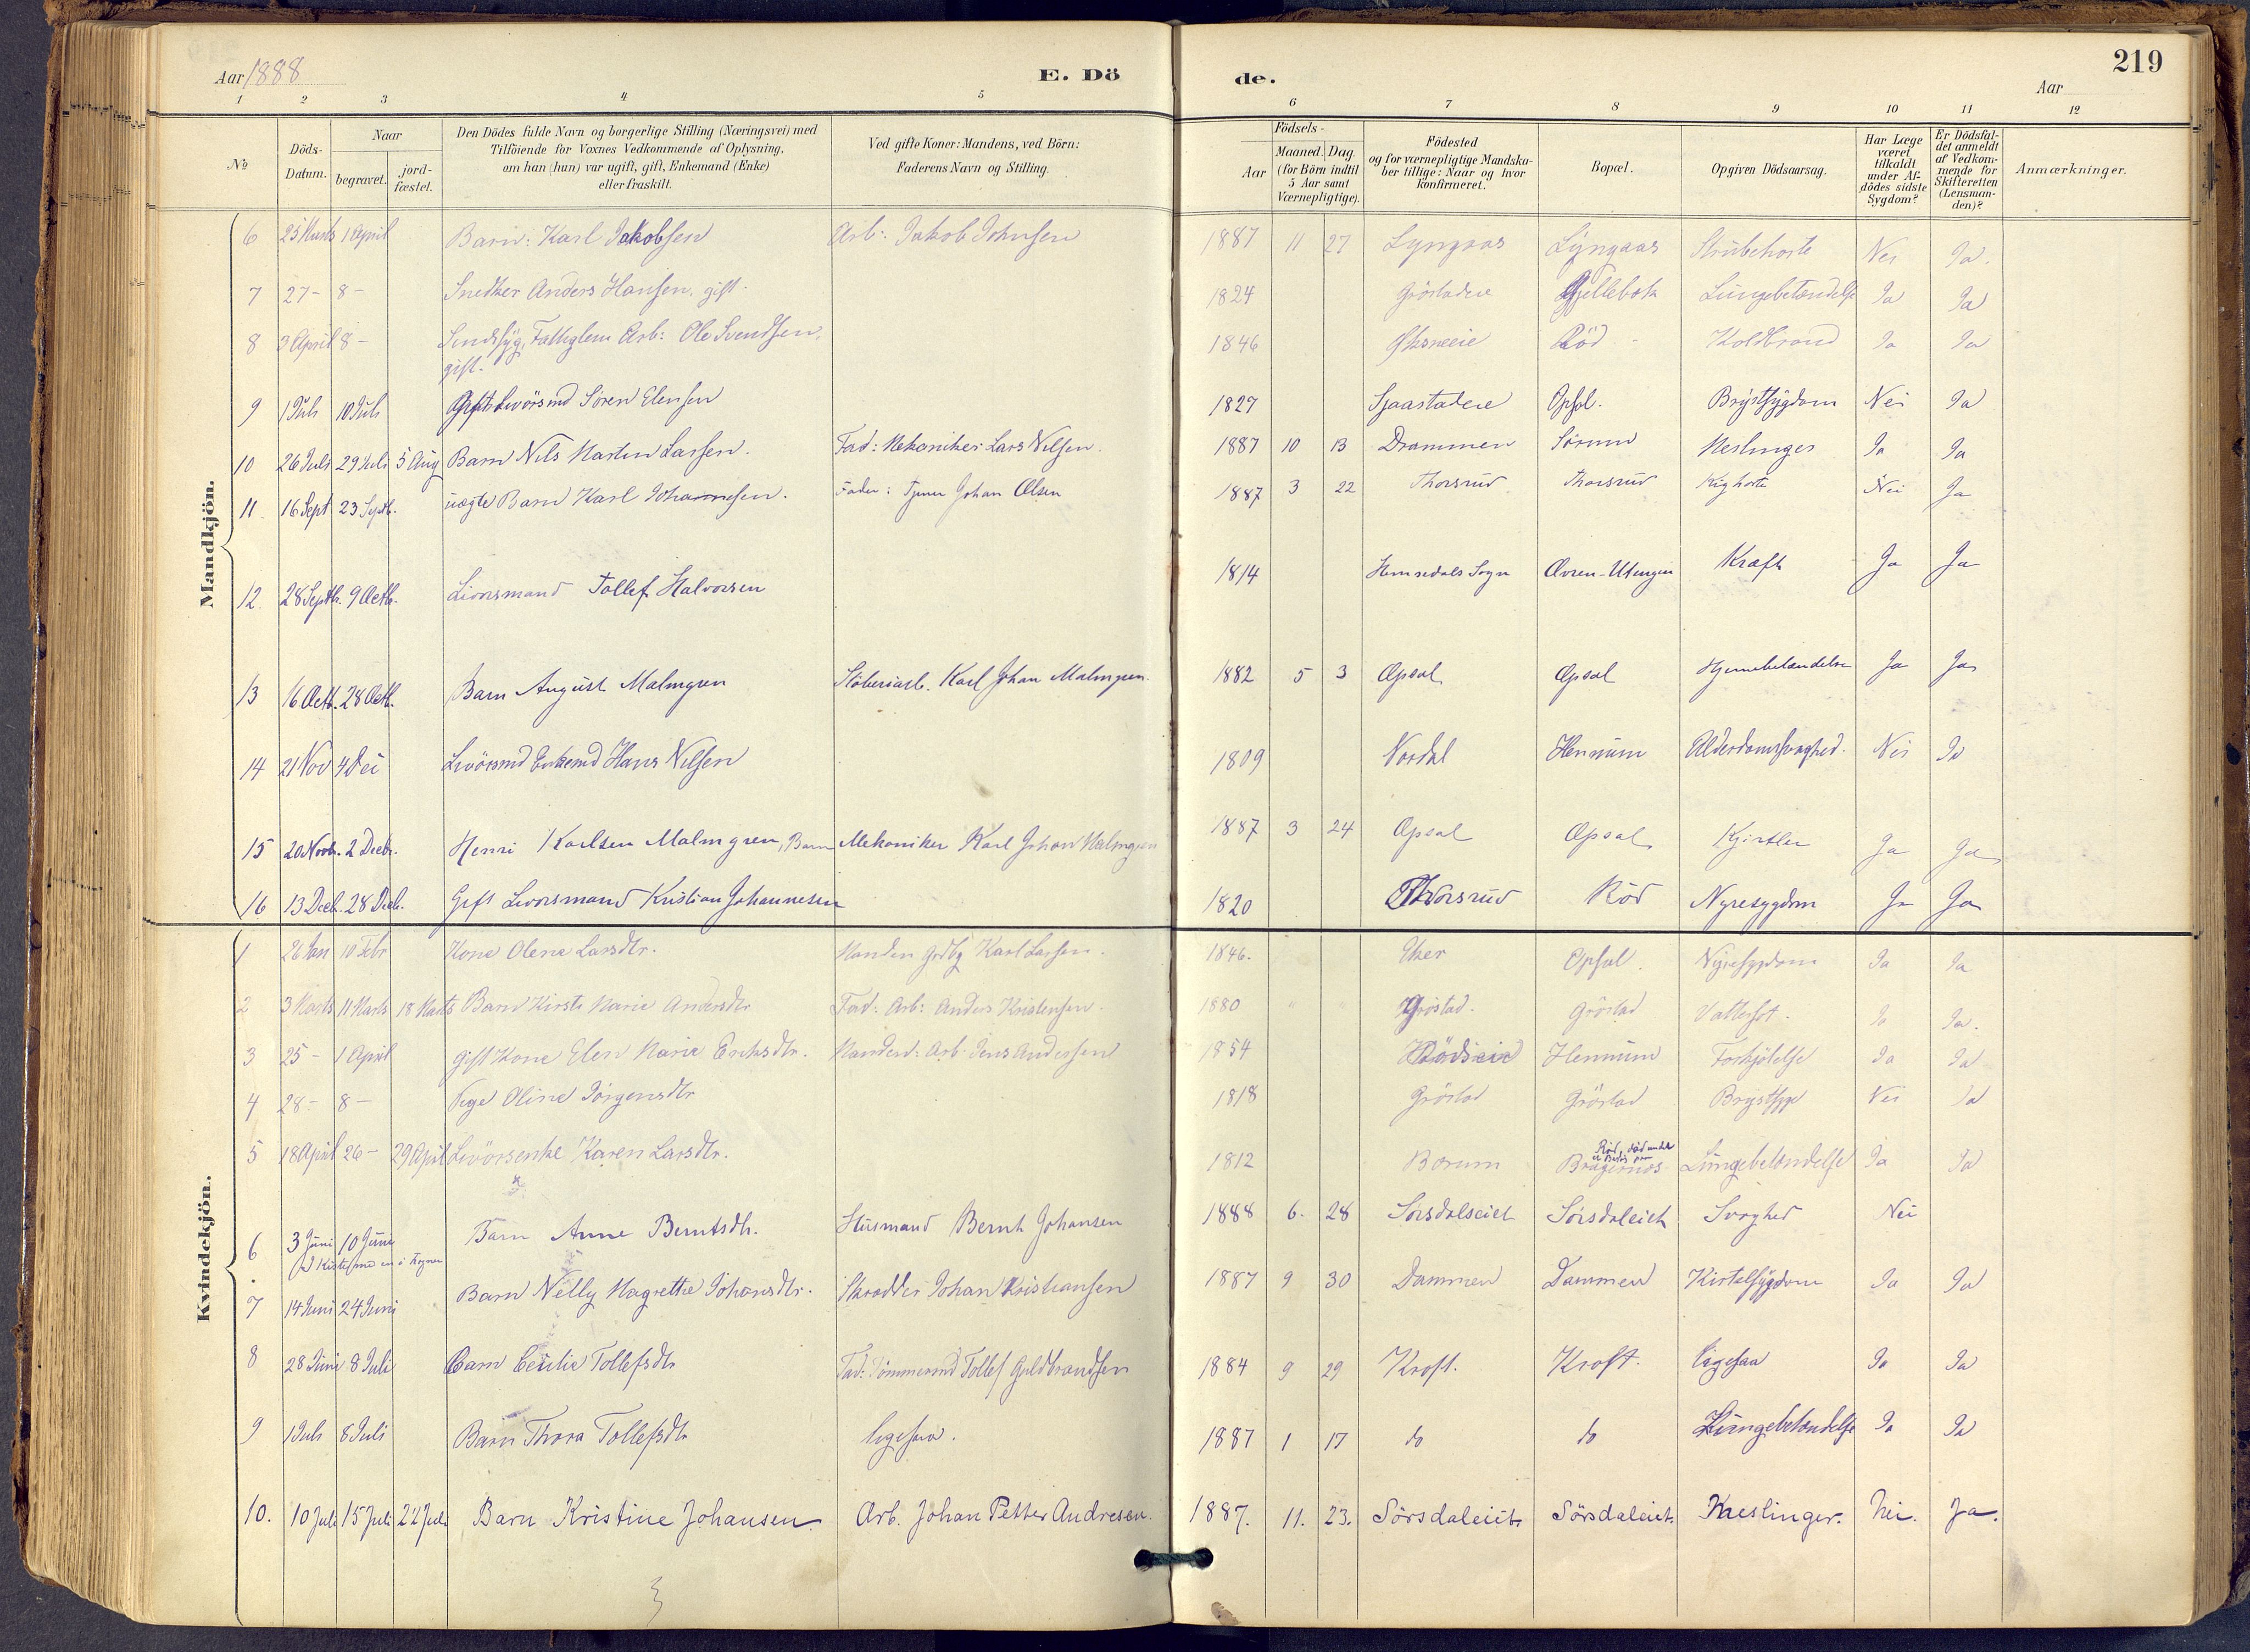 219
Aar 1888
E. Dö
de.
Aar
1 2 3 4 5 6 7 8 9 10 11 12
No
Döds-
Datum.
Naar
begravet.
jord-
fæstet.
Den Dödes fulde Navn og borgerlige Stilling (Næringsvei) med
Tilföiende for Voxnes Vedkommende af Oplysning,
om han (hun) var ugift, gift, Enkemand (Enke)
eller fraskilt.
Ved gifte Koner: Mandens, ved Börn:
Faderens Navn og Stilling.
Födsels-
Aar
Maaned. Dag.
(for Börn indtil
5 Aar samt
Værnepligtige).
Födested
og for værnepligtige Mandska-
ber tillige: Naar og hvor
konfirmeret.
Bopæl.
Opgiven Dödsaarsag.
Har Læge
været
tilkaldt
under Af-
dödes sidste
Sygdom?
Er Dödsfal-
det anmeldt
af Vedkom-
mende for
Skifteretten
(Lensman-
den)?
Anmærkninger.
Mandkjön.
6 25 Marts 1 April Barn: Karl Jakobsen Arb: Jakob Johnsen 1887 11 27 Lyngaas Lyngaas Strubehoste Nei Ja.
7 27 - 8 - Snedker Anders Hansen. gift. 1824 Gjellebek Lungebetændelse Ja Ja
8 3 April 8 - Sindssyg, Fattiglem Arb: Ole Svendsen, 1846 Röd - Koldbrand Ja Ja
gift.
9 1 Juli 10 Juli Gift Sören Elensen 1827 Opsal. Brystsygdom Nei Ja
10 26 Juli 29 Juli 5 Aug Barn Nils Martin Larsen. Fad: Mekaniker Lars Nilsen. 1887 10 13 Drammen Meslinger Ja Ja
11. 16 Sept 23 Septb. uægte Barn Karl Johannesen. Fader: Tjener Johan Olsen 1887 3 22 Thorsrud Thorsrud Kighoste Nei Ja
12. 28 Septb. 9 Octb. Livorsmand Tollef Halvorsen 1814 Hemsedals Sogn Kræft Ja Ja
13 16 Octb. 28 Octb. Barn August Malmgren Stöberiarb. Karl Johan Malmgren. 1882 5 3 Opsal Opsal Hjernebetændelse Ja Ja
14 21 Nov 4 Dei Enkemd Hans Nilsen 1809 Nordal Hennum Alderdomssvaghed. Nei Ja
15 20 Novb. 2 Decbr. Henri Karlsen Malmgren, Barn Mekaniker Karl Johan Malmgren 1887 3 24 Opsal Opsal Kjirtler Ja Ja
16 13 Decb. 28 Decb. Gift Livorsmand Kristian Johannesen 1820 Thorsrud Röd Nyresygdom Ja Ja
Kvindekjön.
1 26 Jan 10 Febr Kone Olene Larsdtr. Manden Karl Larsen. 1846. Eker Opsal. Nyresygdom Ja Ja
2 3 Marts 11 Marts 18 Marts Barn Kirsti Marie Andersdtr Fad: Arb: Anders Kristensen. 1880 " " Gröstad. Gröstad Vattersot. Ja Ja.
3 25 - 1 April gift Kone Elen Marie Eriksdtr. Manden: Arb: Jens Andersen 1854 Hennum Forkjölelse Ja Ja
4 28 - 8 - Pige Oline Jörgensdtr 1818 Gröstad Gröstad Brystsyge Nei Ja
5 18 April 26 - 29 April Karen Larsdtr. 1812 Bærum Bragernæs Lungebetændelse Ja Ja
6 3 Juni 10 Juni Barn Anne Berntsdtr. Husmand Bernt Johansen 1888 6. 28 Sörsdalseiet Sörsdaleiet Svaghed Nei
7 14 Juni 24 Juni Barn Nelly Magrethe Johansdtr. Skrædder Johan Kristiansen 1887 9 30 Dammen Dammen Kirtelsygdom Ja Ja
8 28 Juni 8 Juli Barn Cecilie Tollefsdtr Fad: Tömmermd Tollef Guldbrandsen 1884 9 29 Kroft. Kroft. ligesaa Ja Ja
9 1 Juli 8 Juli Barn Thora Tollefsdtr ligesaa. 1887 1 17 do do Lungebetændelse Ja Ja
10. 10 Juli 15 Juli 22 Juli Barn Kristine Johansen. Arb. Johan Petter Andresen. 1887. 11. 23. Sörsdaleiet. Sörsdaleiet. Meslinger. Nei. Ja.